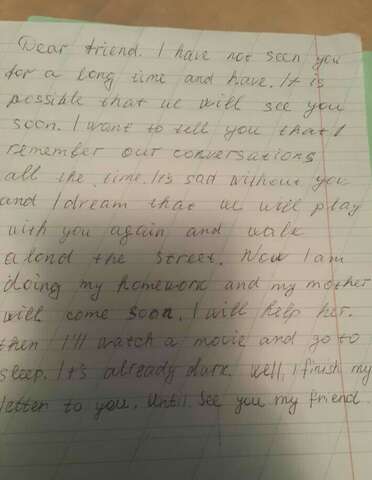 Dear friend. I have not seen you
for a long time and have. It is
possible that we will see you
soon. I want to tell you that I
remember our conversations
all the time. It's sad without you
and I dream that we will play
with you again and walk
alond the street. Now I am
doing my homework and my mother
will come soon. I will help her.
then I'll watch a movie and go to
sleep. It's already dark. Well, I finish my
letter to you. Until see you my friend